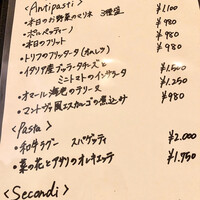 <Antipasti>
・本日のお野菜のマリネ 3種盛 ¥1.100
・ポルペッティーノ ¥980
・本日のフリット ¥980
・トリフのフリッタータ(オムレツ) ¥980
・イタリア産ブッラータチーズと
ミニトマトのインサラータ ¥1.500
・オマール海老のテリーヌ ¥1.250
・マントヴァ風エスカルゴの煮込み ¥980
<Pasta>
・和牛ラグー スパゲッティ ¥2.000
・菜の花とアサリのオレキエッテ ¥1.750
<Secondi>